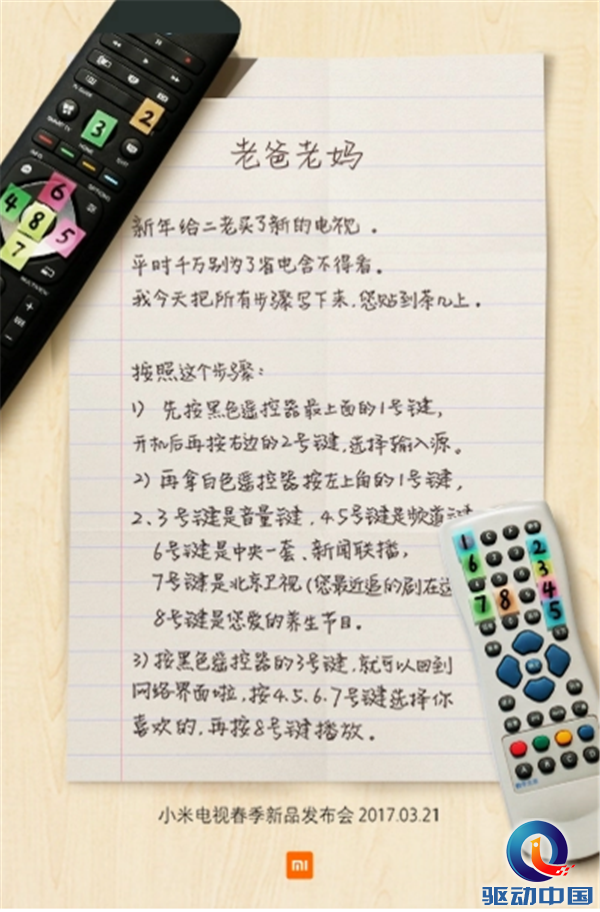 老爸老妈
新年给二老买了新的电视。
平时千万别为了省电舍不得看。
我今天把所有步骤写下来，您贴到茶几上。
按照这个步骤：
1) 先按黑色遥控器最上面的1号键，
开机后再按右边的2号键，选择输入源。
2) 再拿白色遥控器按左上角的1号键，
2、3号键是音量键，4.5号键是频道键
6号键是中央一套、新闻联播，
7号键是北京卫视(您最近追的剧在这
8号键是您爱的养生节目。
3) 按黑色遥控器的3号键，就可以回到
网络界面啦，按4.5.6.7号键选择你
喜欢的，再按8号键播放。
小米电视春季新品发布会 2017.03.21
mi
驱动中国
2
3
SMART TV
HOME
EXIT
INFO
OPTIONS
6
4
8
5
7
MULTI VIEW
1
2
6
3
4
7
8
5
A
B
C
D